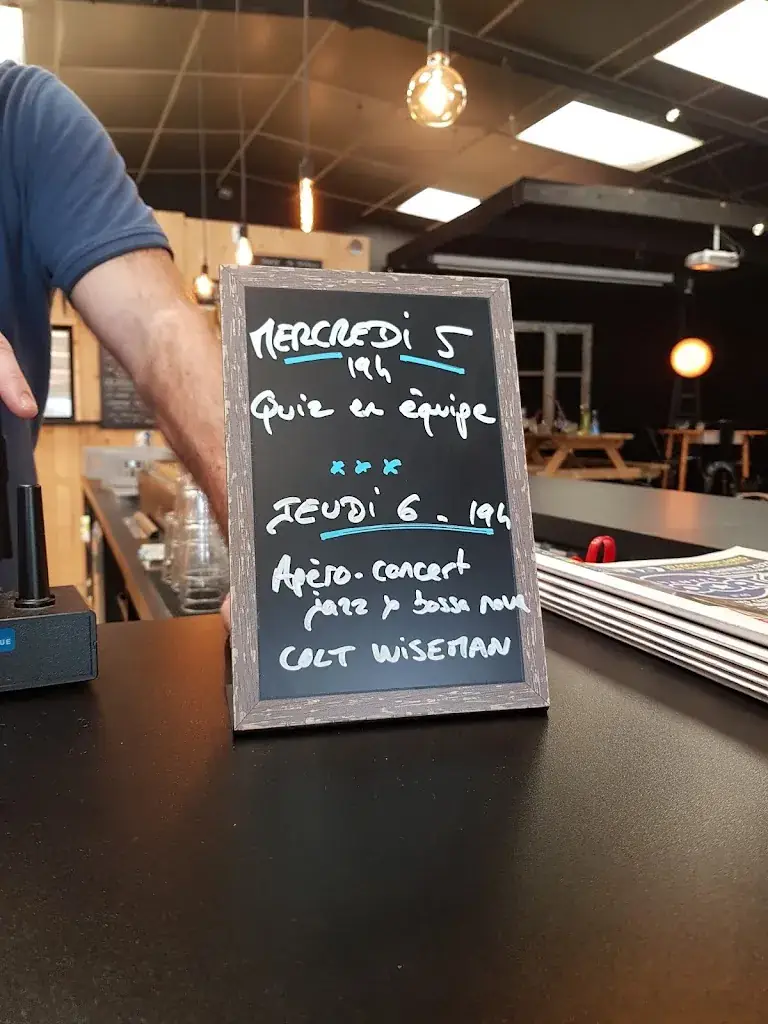 MERCREDI 5
19h
Quiz en équipe
xxx
JEUDI 6 - 19h
Apéro-concert
jazz & bossa nova
COLT WISEMAN